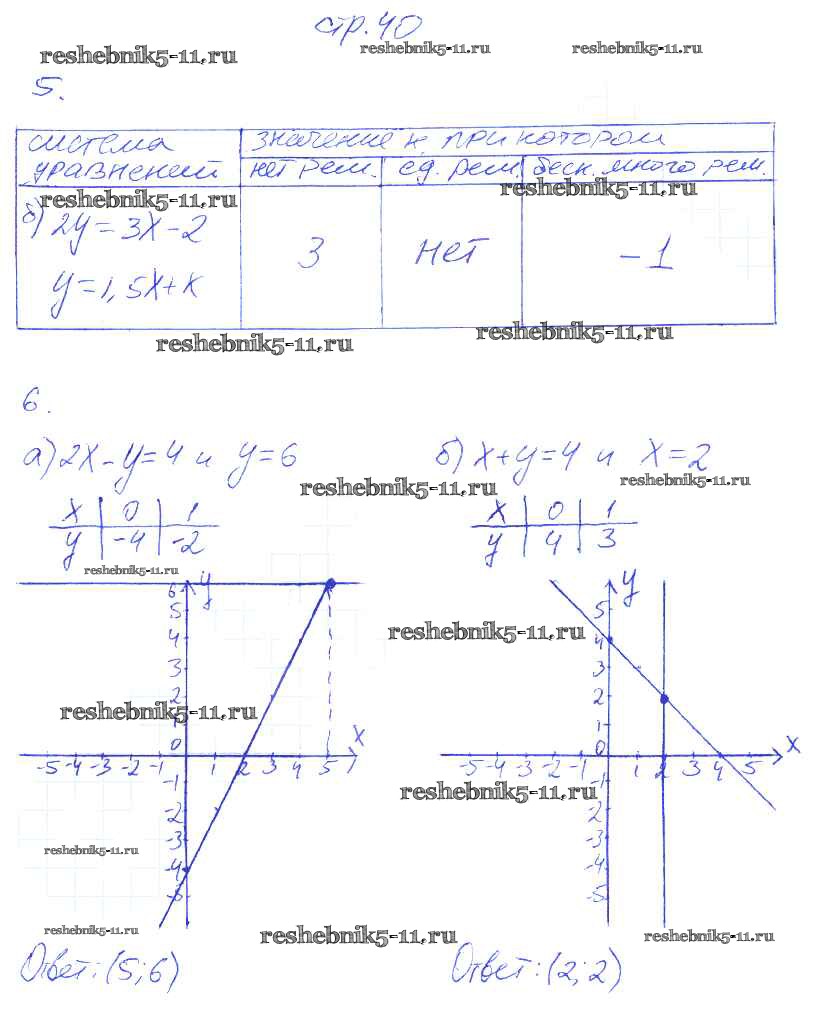 стр. 40
reshebnik5-11.ru reshebnik5-11.ru reshebnik5-11.ru
5.
система уравнений
значение к, при котором
нет реш. ед. реш. беск. много реш.
reshebnik5-11.ru reshebnik5-11.ru
б) 2y = 3x - 2
y = 1,5x + к
3 нет -1
reshebnik5-11.ru reshebnik5-11.ru
6.
а) 2x - y = 4 и y = 6
б) x + y = 4 и x = 2
reshebnik5-11.ru reshebnik5-11.ru
x 0 1
y -4 -2
x 0 1
y 4 3
reshebnik5-11.ru
y
6
5
4
3
2
1
0
x
-5 -4 -3 -2 -1 1 2 3 4 5
-1
-2
-3
-4
-5
reshebnik5-11.ru
y
5
4
3
2
1
0
x
-5 -4 -3 -2 -1 1 2 3 4 5
-1
-2
-3
-4
-5
reshebnik5-11.ru
reshebnik5-11.ru
reshebnik5-11.ru
reshebnik5-11.ru reshebnik5-11.ru reshebnik5-11.ru
Ответ: (5; 6)
Ответ: (2; 2)